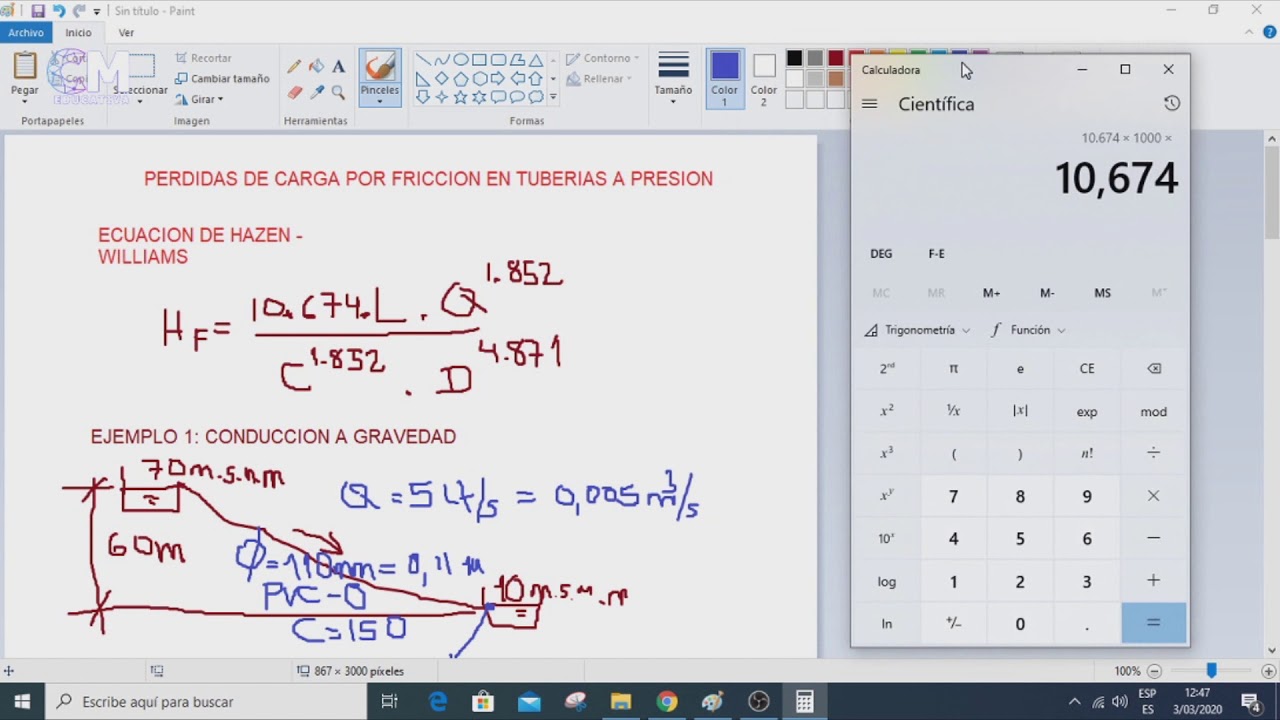 Sin título - Paint
Archivo
Inicio
Ver
Pegar
Seleccionar
Recortar
Cambiar tamaño
Girar
CM
EDUCATIVA
Pinceles
Contorno
Rellenar
Tamaño
Color 1
Color 2
Portapapeles
Imagen
Herramientas
Formas
PERDIDAS DE CARGA POR FRICCION EN TUBERIAS A PRESION
ECUACION DE HAZEN -
WILLIAMS
HF = 10.674.L . Q^1.852
C^1.852 . D^4.871
EJEMPLO 1: CONDUCCION A GRAVEDAD
70m.s.n.m
Q = 5 Lt/s = 0,005 m³/s
60m
Ø=110mm = 0,11 m
PVC-O
C=150
10m.s.n.m
Calculadora
Científica
10.674 × 1000 ×
10,674
DEG
F-E
MC MR M+ M- MS M˅
Trigonometría
Función
2ⁿᵈ π e CE
x² ¹/x |x| exp mod
x³ ( ) n! ÷
xʸ 7 8 9 ×
10ˣ 4 5 6 −
log 1 2 3 +
ln +/− 0 . =
867 × 3000 píxeles
100%
Escribe aquí para buscar
ESP
ES
12:47
3/03/2020
4